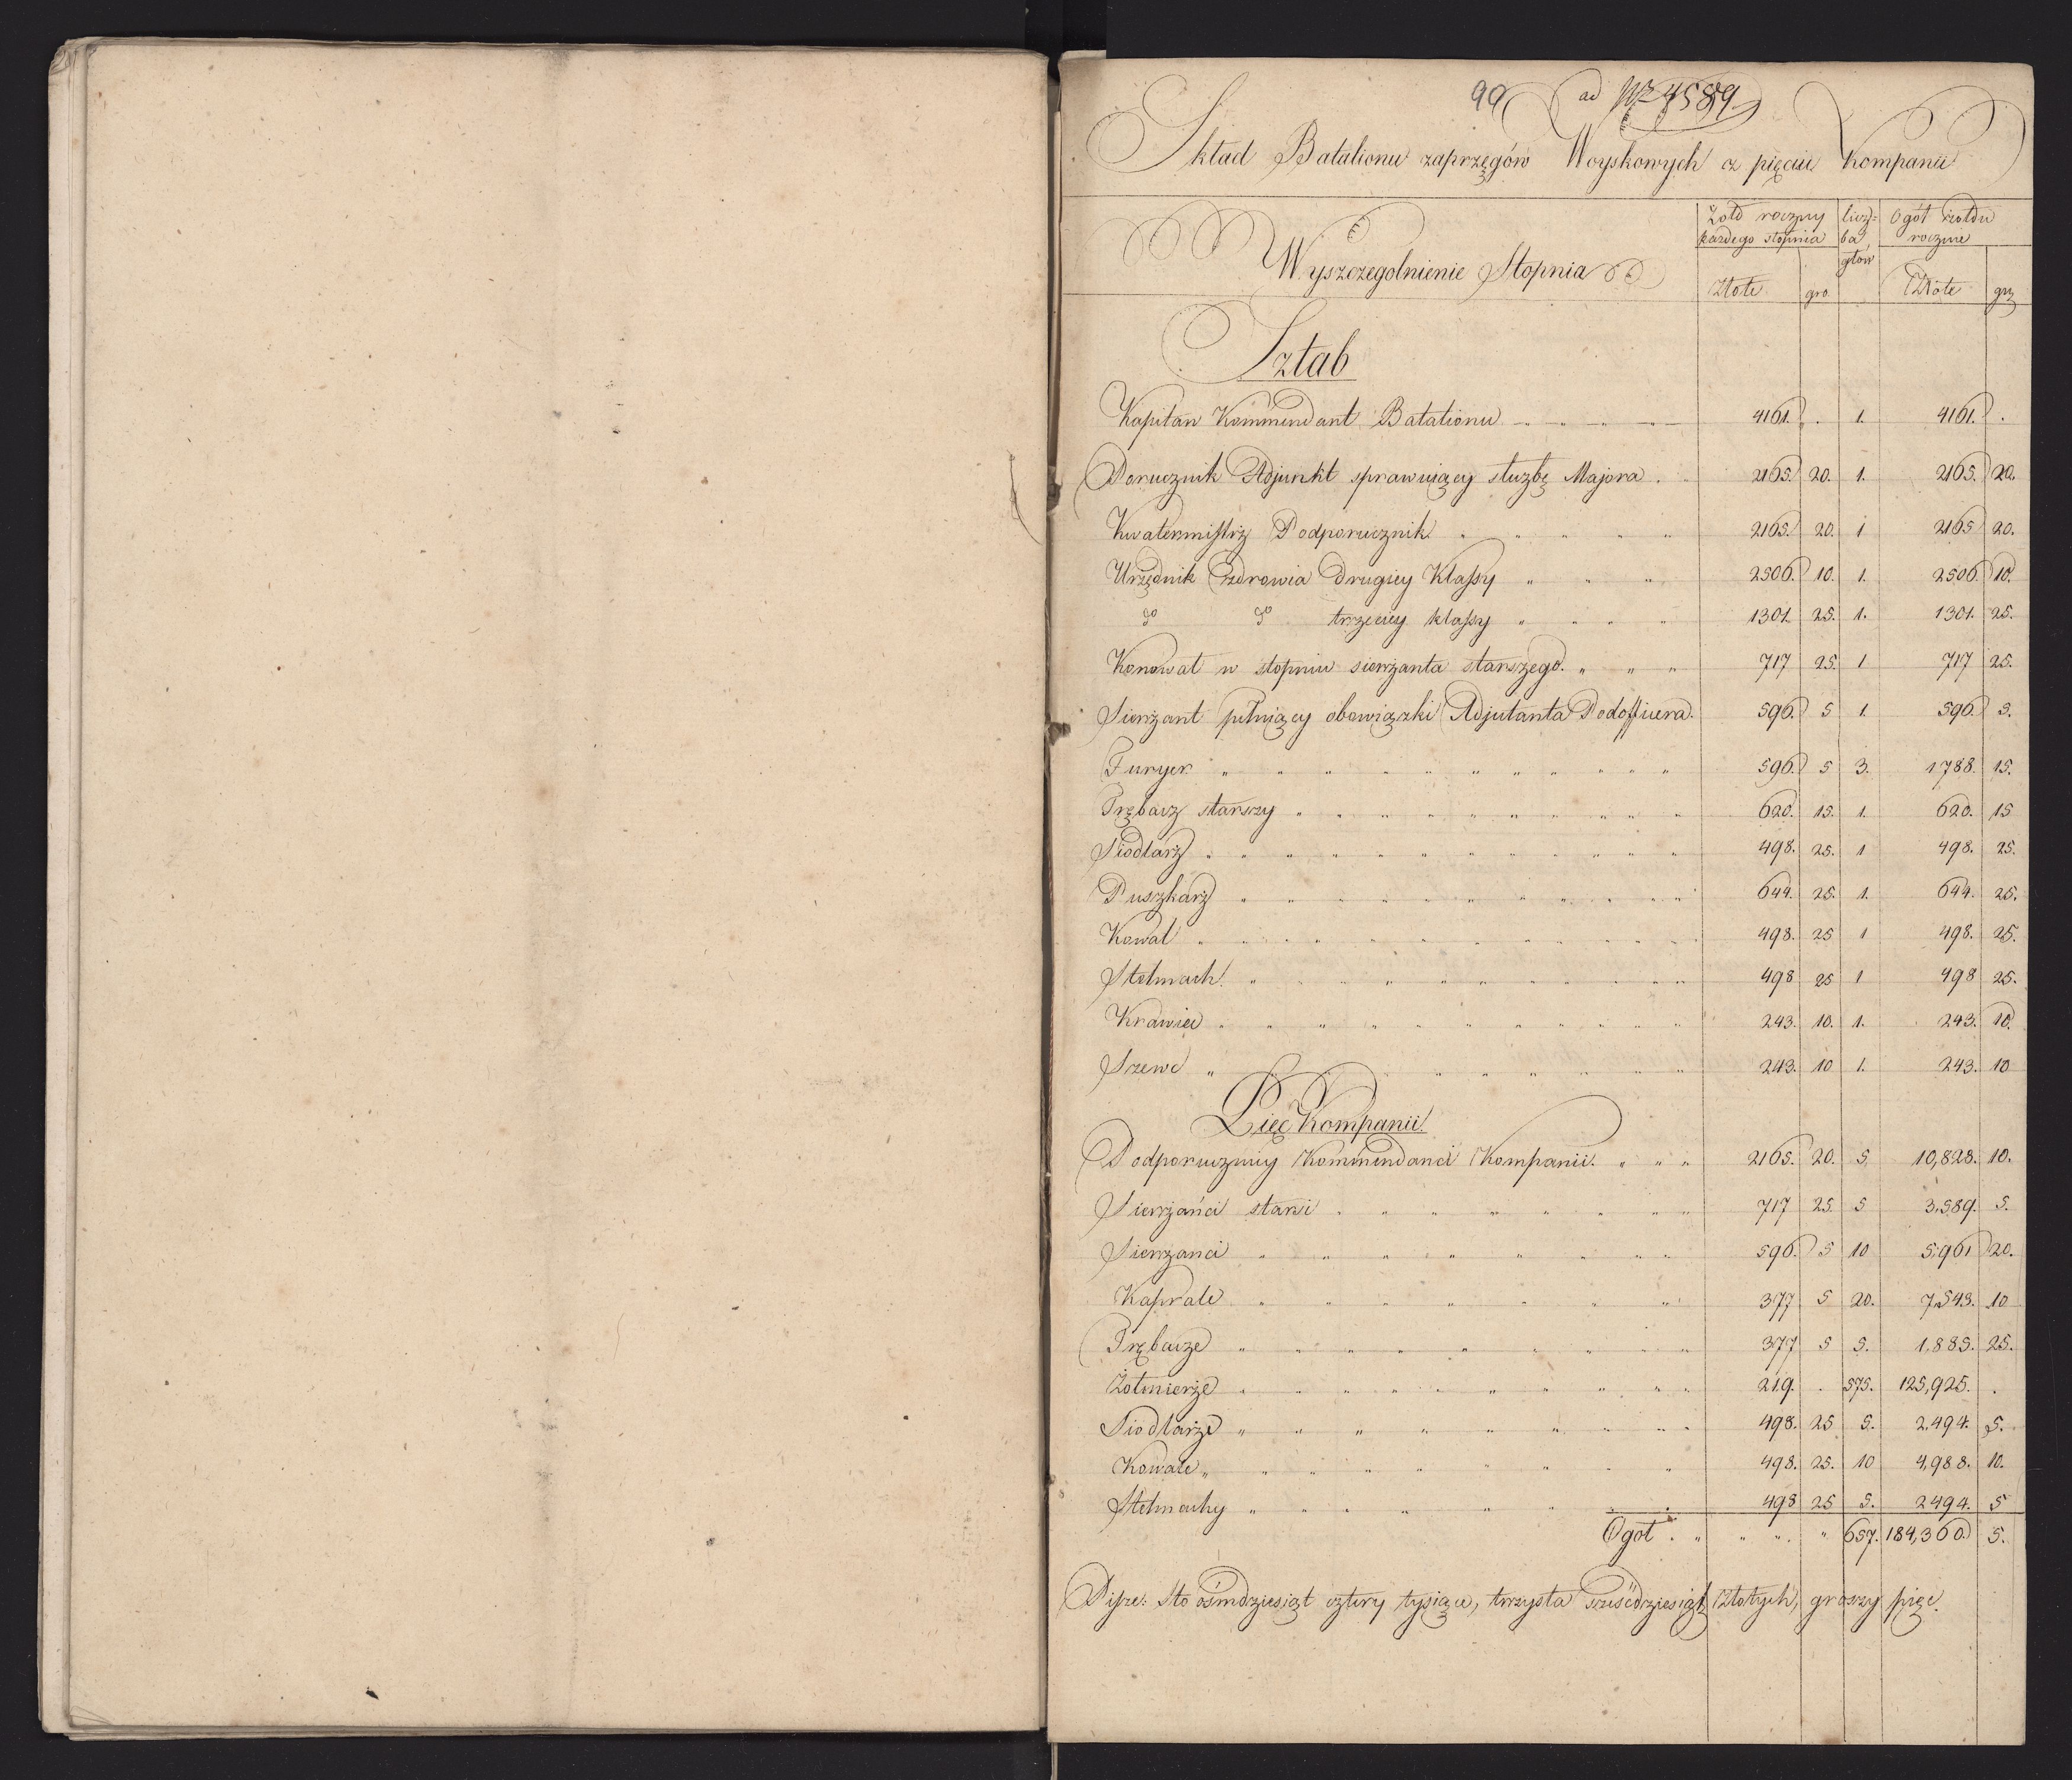 99 ad Nr 4589
Skład Batalionu zaprzęgów Woyskowych o pięciu Kompanii
Wyszczegolnienie Stopnia | Zołd roczny każdego stopnia | licz=ba głów | Ogół żołdu rocznie
Złote | gro. | Złote | grz
Sztab
Kapitan Kommendant Batalionu | 4161. | . | 1. | 4161. | .
Porucznik Adjunkt sprawuiący służbę Majora . | 2165. | 20. | 1. | 2165. | 20.
Kwatermistrz Podporucznik | 2165. | 20. | 1 | 2165 | 20.
Urzędnik zdrowia drugiey Klassy | 2506. | 10. | 1. | 2506. | 10.
do do trzeciey klassy | 1301. | 25. | 1. | 1301. | 25.
Konował w stopniu sierżanta starszego. | 717 | 25. | 1 | 717 | 25.
Sierżant pełniący obowiązki Adjutanta Podofficera. | 596. | 5 | 1. | 596. | 5.
Furyer | 596. | 5 | 3. | 1788. | 15.
Trębacz starszy | 620. | 15. | 1. | 620. | 15
Siodlarz | 498. | 25. | 1 | 498. | 25.
Puszkarz | 644. | 25. | 1. | 644. | 25.
Kowal | 498. | 25 | 1 | 498. | 25.
Stelmach | 498 | 25 | 1 | 498 | 25.
Krawiec | 243. | 10. | 1. | 243. | 10.
Szewc | 243. | 10 | 1. | 243. | 10
Pięć Kompanii
Podporucznicy Kommendanci Kompanii. | 2165. | 20. | 5 | 10,828. | 10.
Sierżańci starsi | 717 | 25. | 5 | 3,589. | 5.
Sierżanci | 596. | 5 | 10 | 5,961 | 20.
Kaprale | 377 | 5 | 20. | 7,543. | 10
Trębacze | 377 | 5 | 5. | 1,885. | 25.
Żołnierze | 219. | . | 575. | 125,925. | .
Siodlarze | 498. | 25 | 5. | 2,494. | 5.
Kowale | 498. | 25. | 10 | 4,988. | 10.
Stelmachy | 498 | 25 | 5. | 2494. | 5
Ogół | 657. | 184,360. | 5.
Pisze: Sto ośmdziesiąt cztery tysiące, trzysta sześćdziesiąt Złotych, groszy pięć.